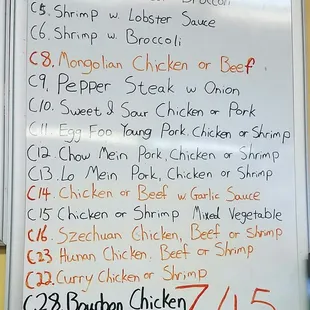 Broccoli
C5. Shrimp w. Lobster Sauce
C6. Shrimp w. Broccoli
C8. Mongolian Chicken or Beef
C9. Pepper Steak w Onion
C10. Sweet & Sour Chicken or Pork
C11 Egg Foo Young Pork, Chicken or Shrimp
C12 Chow Mein Pork, Chicken or Shrimp
C13. Lo Mein Pork, Chicken or Shrimp
C14. Chicken or Beef w Garlic Sauce
C15 Chicken or Shrimp Mixed Vegetable
C16. Szechuan Chicken, Beef or Shrimp
C23 Hunan Chicken. Beef or Shrimp
C22. Curry Chicken or Shrimp
C28 Bourbon Chicken